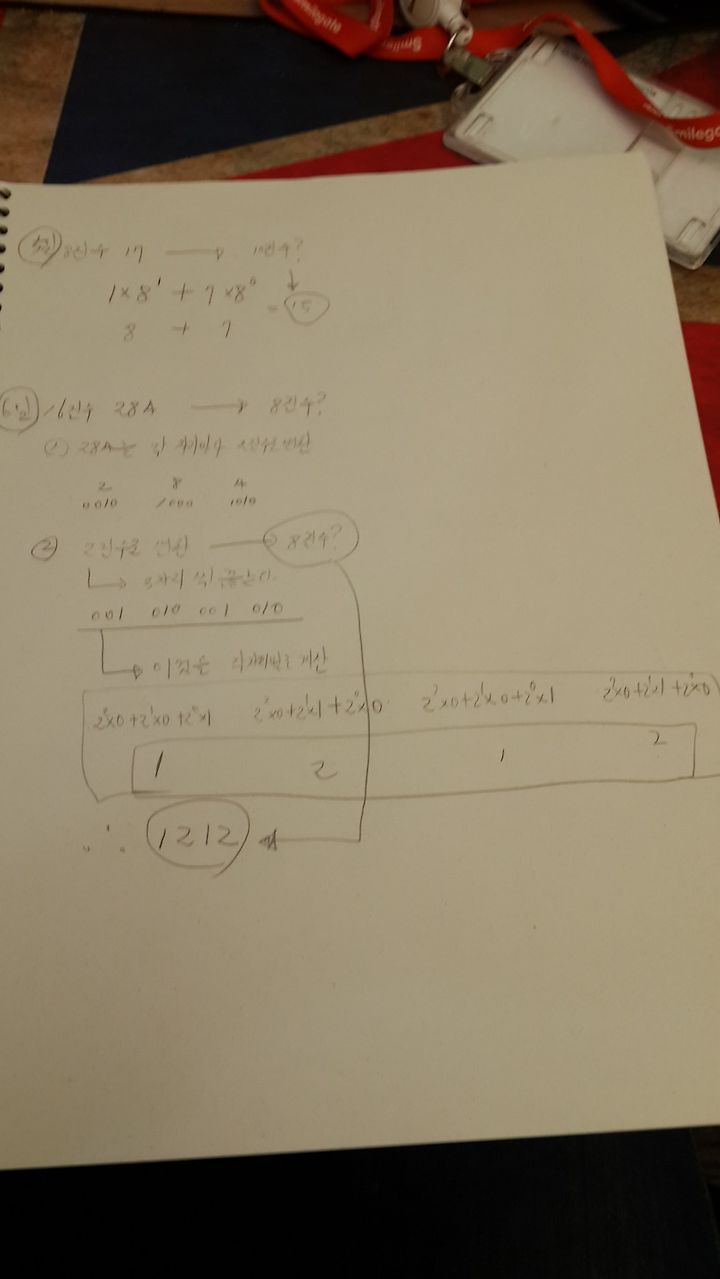 Smilegate
Smilegate
Smilegate
8진수 17 → 10진수?
1×8¹ + 7×8⁰
= 15
8 + 7
16진수 28A → 8진수?
① 28A는 각 자리마다 2진수로 변환
2 8 A
0010 1000 1010
② 2진수로 변환 → 8진수?
3자리 씩 끊는다.
001 010 001 010
이것을 각자리별로 계산
2²×0+2¹×0+2⁰×1 2²×0+2¹×1+2⁰×0 2²×0+2¹×0+2⁰×1 2²×0+2¹×1+2⁰×0
1 2 1 2
∴ 1212